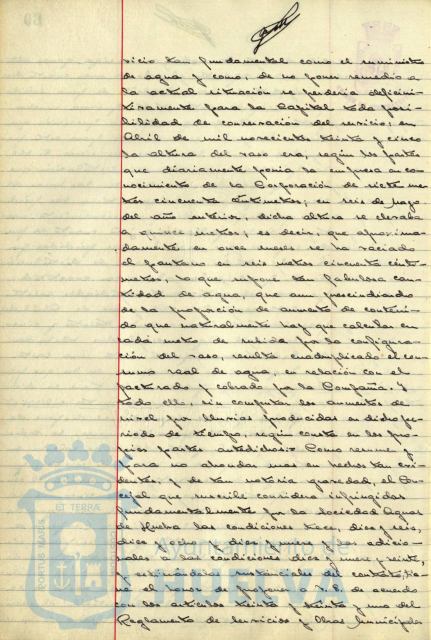 vicio tan fundamental como el suministro
de agua y como, de no poner remedio a
la actual situación se perdería definiti-
tivamente para la Capital toda posi-
bilidad de conservación del servicio; en
Abril de mil novecientos treinta y cinco
la altura del vaso era, según los partes
que diariamente ponía la empresa en co-
nocimiento de la Corporación de siete me-
tros cincuenta centímetros; en seis de Mayo
del año anterior, dicha altura se elevaba
a quince metros; es decir, que aproxima-
damente en once meses se ha vaciado
el pantano en seis metros cincuenta centí-
metros, lo que supone tan fabulosa can-
tidad de agua, que aun prescindiendo
de la proporción de aumento de conteni-
do que naturalmente hay que calcular en
cada metro de subida por la configura-
ción del vaso, resulta cuadruplicado el con-
sumo real de agua, en relación con el
facturado y cobrado por la Compañía. Y
todo ello, sin computar los aumentos de
nivel por lluvias producidas en dicho pe-
riodo de tiempo, según consta en los pro-
pios partes antedichos: Como resumen y
para no ahondar mas en hechos tan evi-
dentes, y de tan notoria gravedad, el Con-
cejal que suscribe considera infringidas
fundamentalmente por la Sociedad Aguas
de Huelva las condiciones trece, diez y seis,
diez y ocho y diez y nueve y las adicio-
nales a las condiciones diez y nueve, veinte,
y estimándolas sustanciales del contrato, tie-
ne el honor de proponer a V.E. de acuerdo
con los artículos treinta y treinta y uno del
Reglamento de Servicios y Obras Municipales
PORTUS MARIS ET TERRAE
Ayuntamiento de
HUELVA